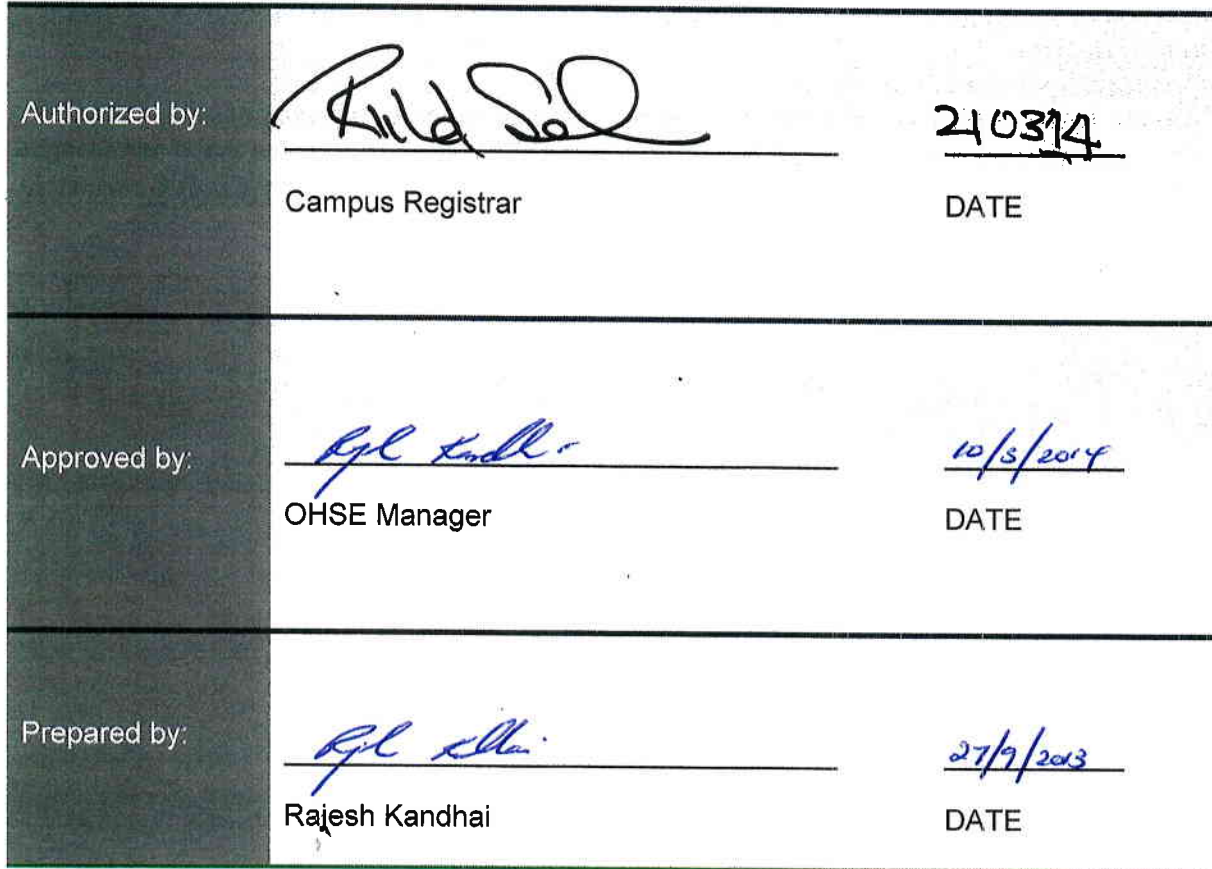 Authorized by:
210314
Campus Registrar
DATE
Approved by:
10/3/2014
OHSE Manager
DATE
Prepared by:
27/9/2013
Rajesh Kandhai
DATE